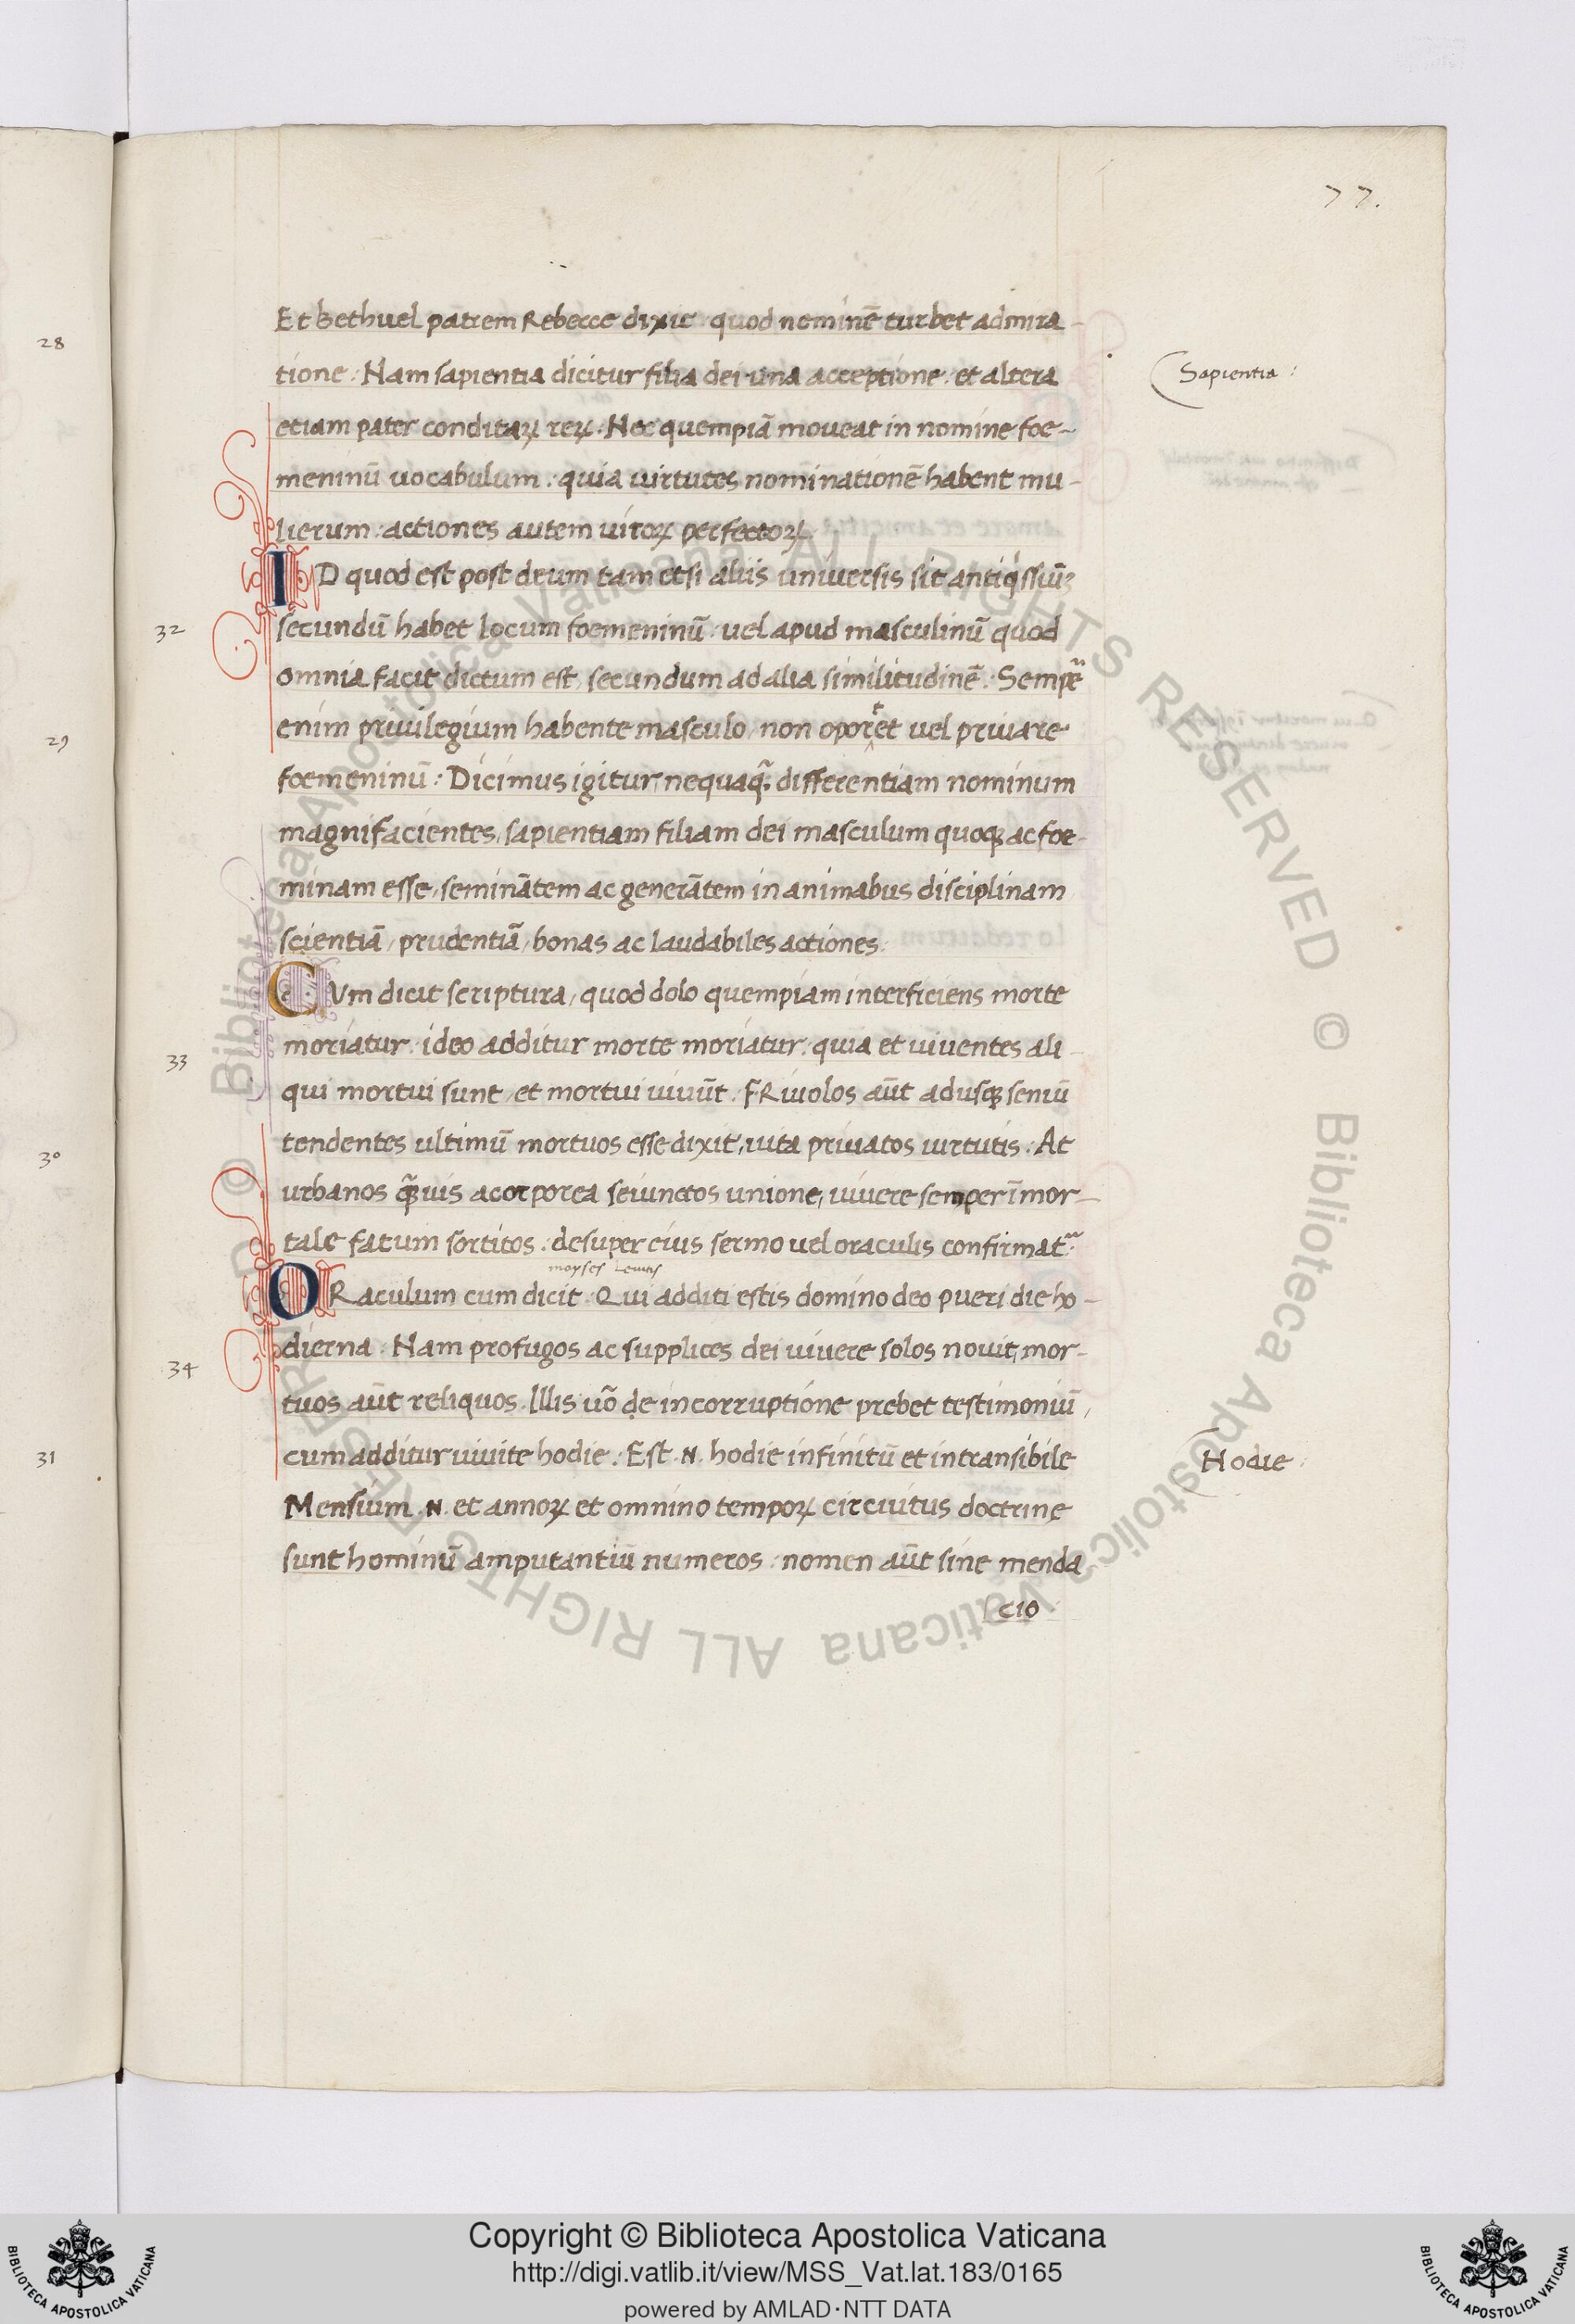 77.
Et bethuel patrem Rebecce dixit quod neminē turbet admira-
tione: Nam sapientia dicitur filia dei una acceptione: et altera
Sapientia:
28
etiam pater conditaꝝ reꝝ. Nec quempiā moveat in nomine foe-
meninū uocabulum: quia uirtutes nominationē habent mu-
lierum: actiones autem uiroꝝ perfectoꝝ.
ID quod est post deum tam etsi aliis universis sit antiqͥssimū
32
secundū habet locum foemeninū: uel apud masculinū quod
omnia facit dictum est, secundum ad alia similitudinē: Semper
29
enim priuilegium habente masculo, non oportet uel priuare
foemeninū: Dicimus igitur, nequaqꝫ differentiam nominum
magnifacientes, sapientiam filiam dei masculum quoqꝫ ac foe-
minam esse, seminātem ac generātem in animabus disciplinam
scientiā, prudentiā, bonas ac laudabiles actiones.
CVm dicit scriptura, quod dolo quempiam interficiens morte
33
moriatur: ideo additur morte moriatur: quia et uiuentes ali-
qui mortui sunt, et mortui uiuūt. FRiuolos aūt adusqꝫ seniū
30
tendentes ultimū mortuos esse dixit, uita priuatos uirtutis. At
urbanos qꝫuis a corporea seiunctos unione, uiuere semper īmor-
tale fatum sortitos: desuper eius sermo uel oraculis confirmat᷑:
moyses Leuitis
ORaculum cum dicit: Qui additi estis domino deo pueri die ho-
34
dierna: Nam profugos ac supplices dei uiuere solos nouit, mor-
tuos aūt reliquos. Illis uō de incorruptione prebet testimoniū,
31
cum additur uiuite hodie: Est .N. hodie infinitū et intransibile
Hodie:
Mensium .N. et annoꝝ et omnino tempoꝝ circuitus doctrinę
sunt hominū amputantiū numeros: nomen aūt sine menda
cio
© Biblioteca Apostolica Vaticana ALL RIGHTS RESERVED © Biblioteca Apostolica Vaticana ALL RIGHTS RESERVED
Copyright © Biblioteca Apostolica Vaticana
http://digi.vatlib.it/view/MSS_Vat.lat.183/0165
powered by AMLAD·NTT DATA
BIBLIOTECA APOSTOLICA VATICANA
BIBLIOTECA APOSTOLICA VATICANA